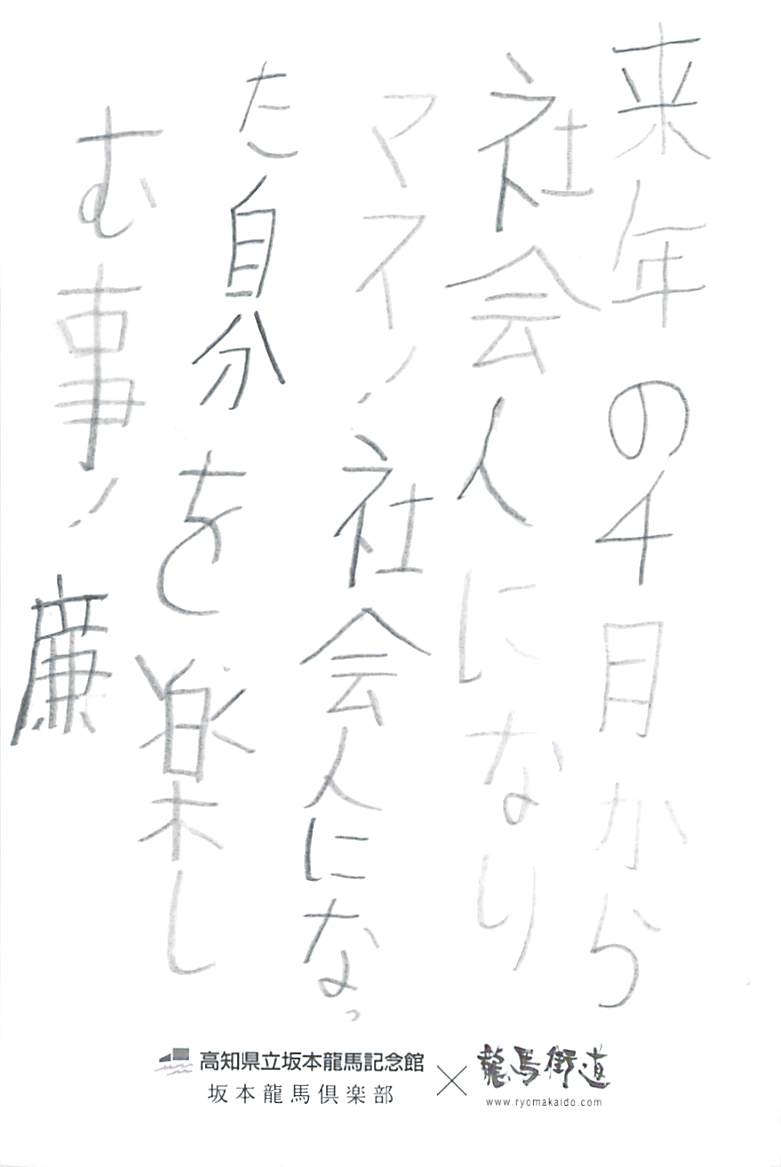 来年の4月から
社会人になり
マス!社会人になっ
た自分を楽し
む事!廉
高知県立坂本龍馬記念館
坂本龍馬倶楽部
×
龍馬街道
www.ryomakaido.com